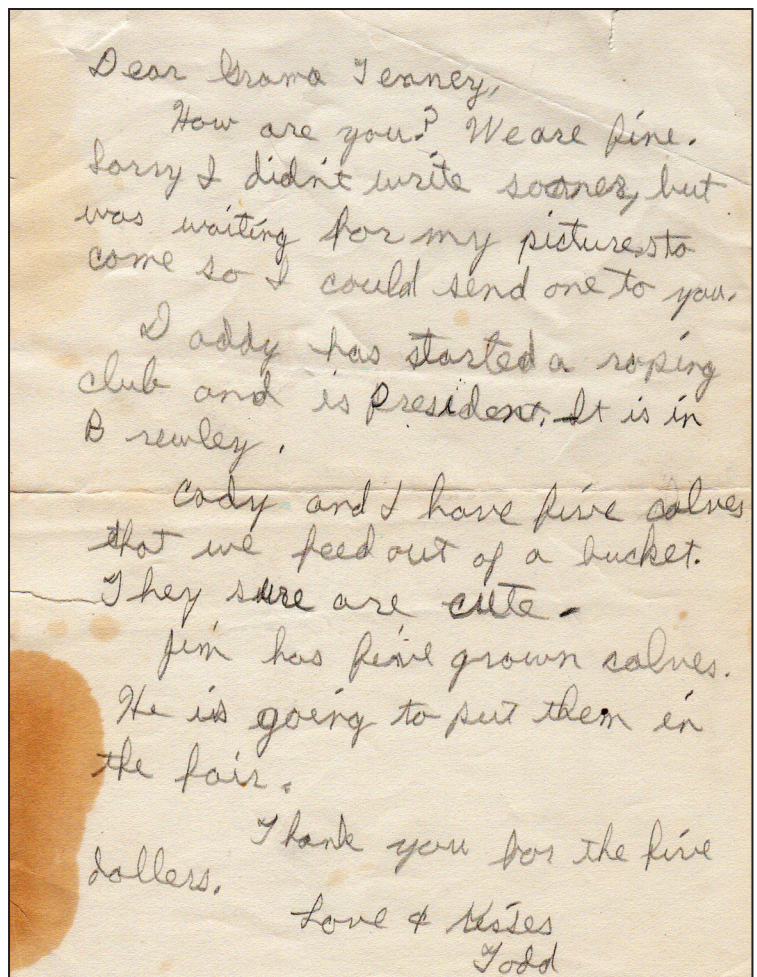 Dear Grama Tenney,
How are you? We are fine.
Sorry I didn't write sooner, but
was waiting for my pictures to
come so I could send one to you.
Daddy has started a roping
club and is President. It is in
Brewley.
Cody and I have five calves
that we feed out of a bucket.
They sure are cute.
Jim has five grown calves.
He is going to put them in
the fair.
Thank you for the five
dollers.
Love & Kisses
Todd